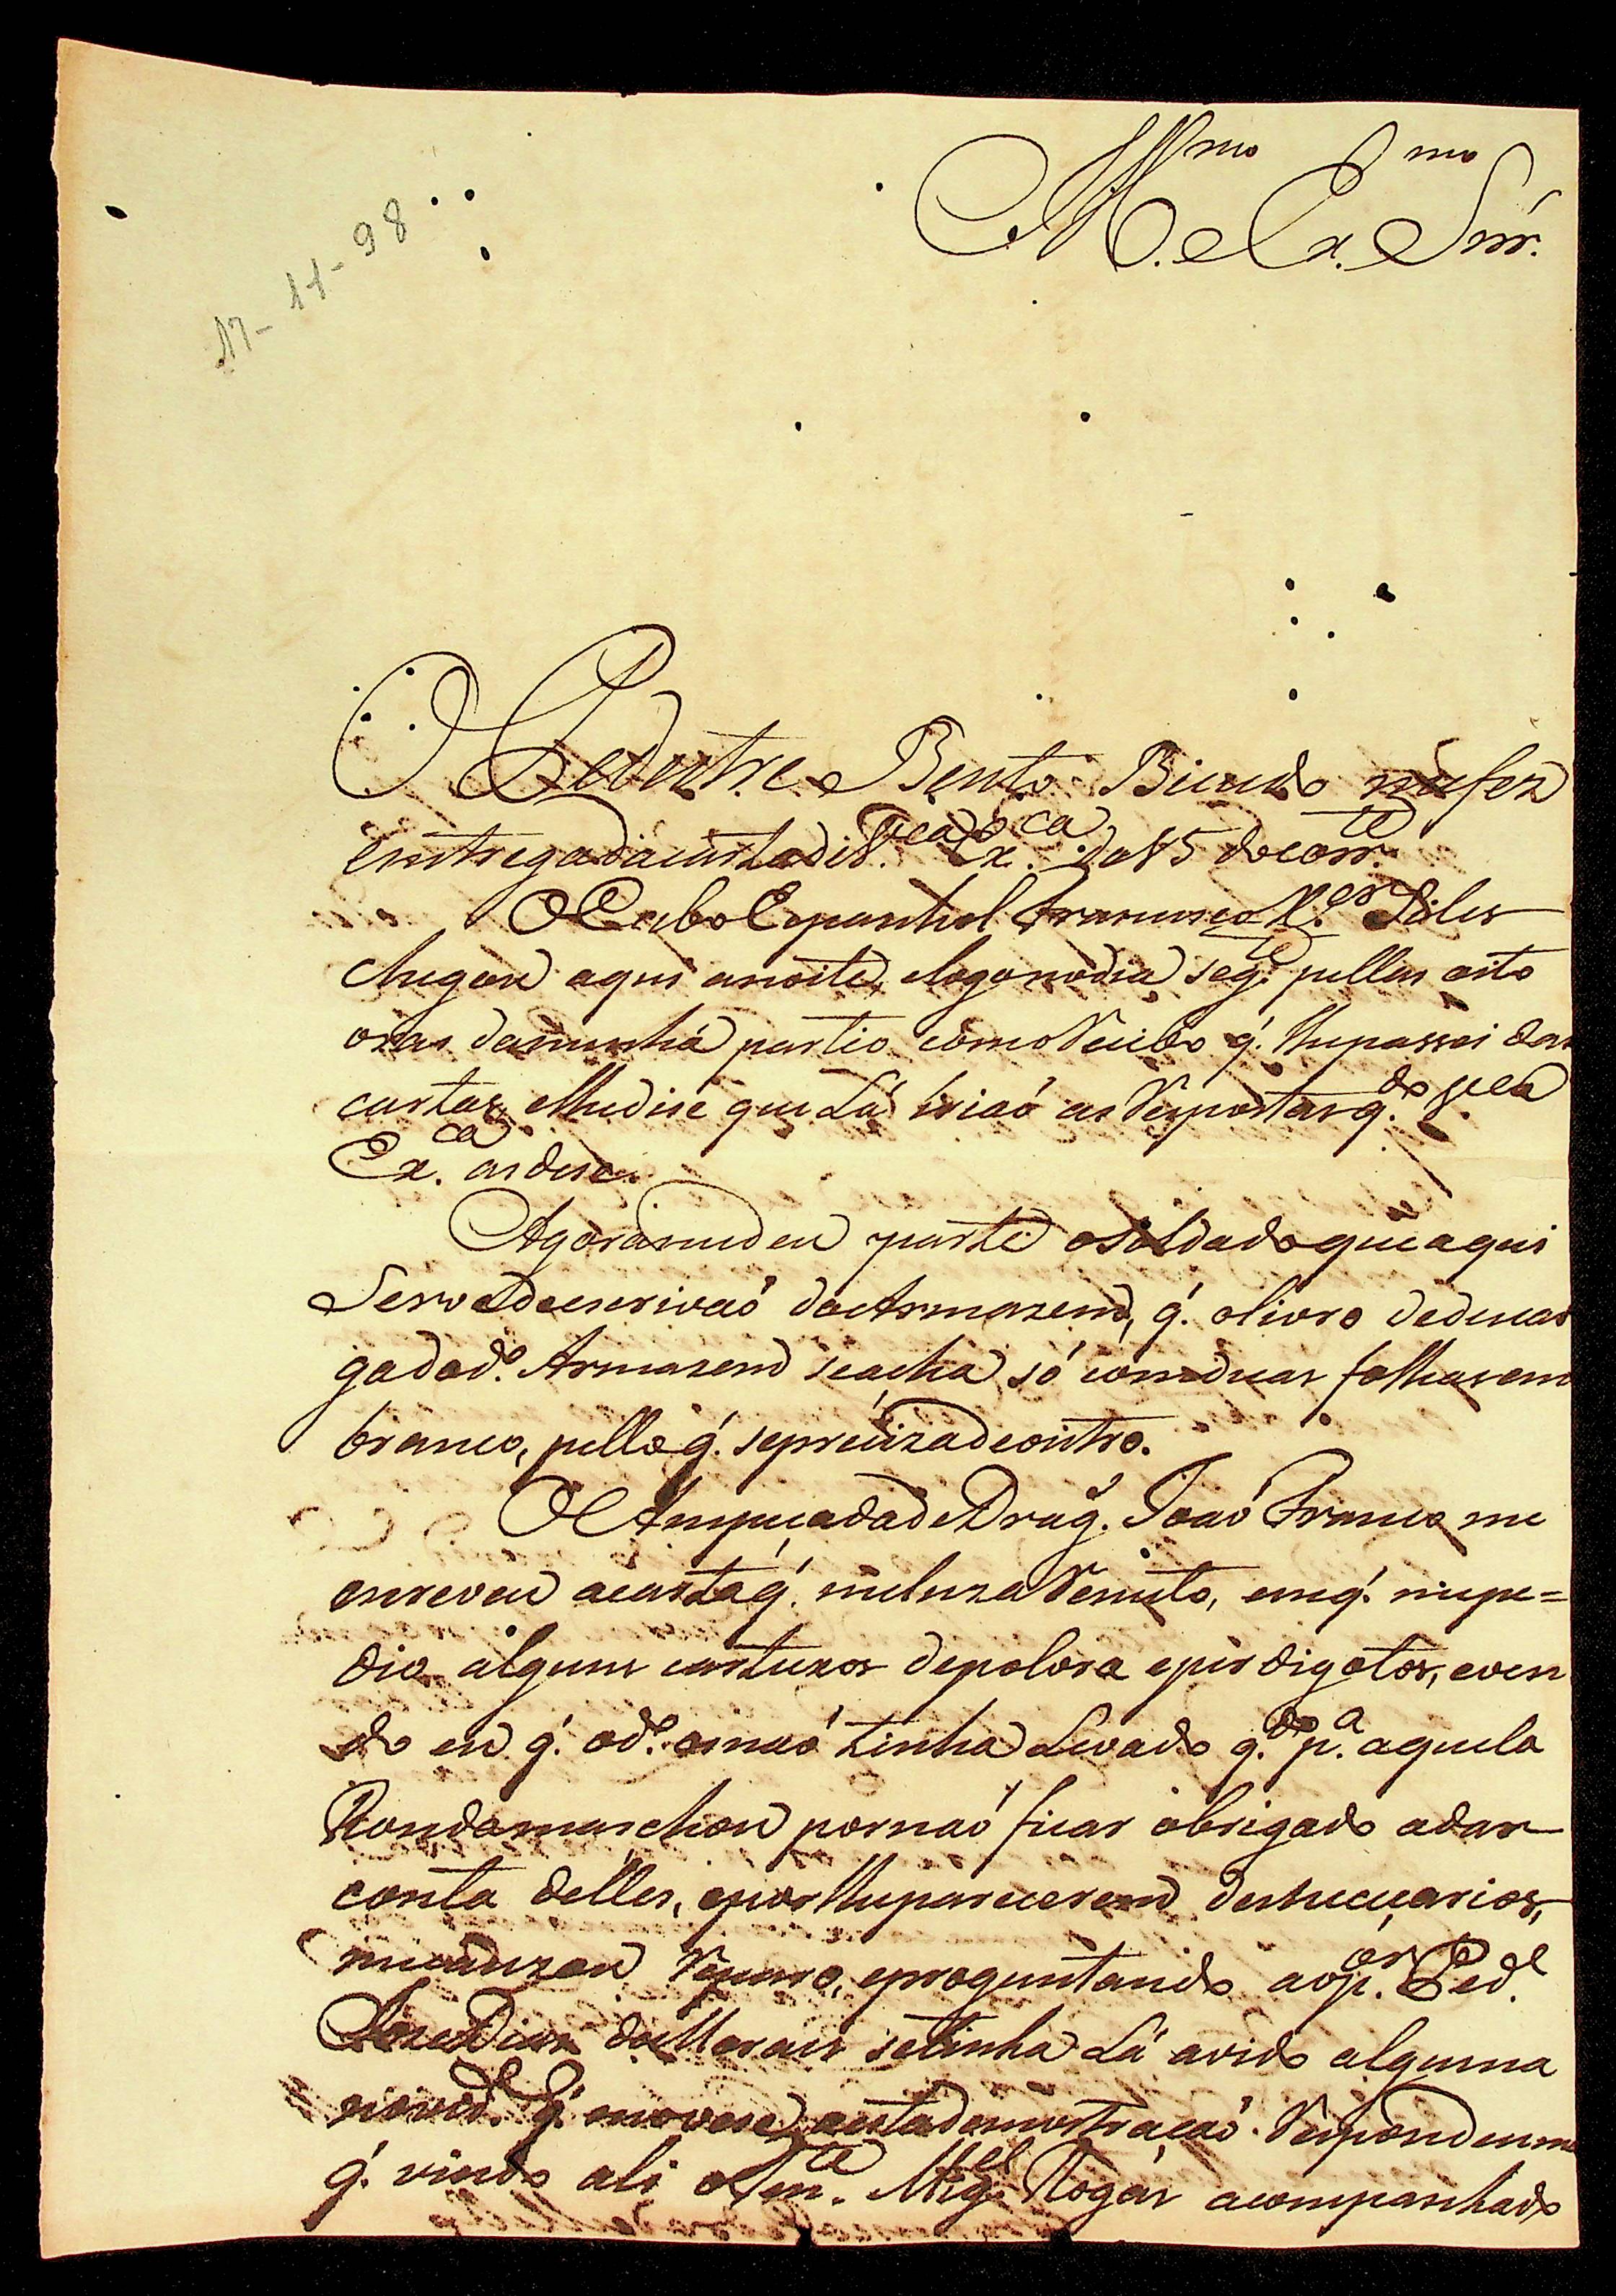 17-11-98
Ill.mo e Ex.mo Snr.
O Pedestre Bento Bicudo mefez
entrega dacarta deV.ca Ex.ca de 15 docorr.te
O Cabo Espanhol Francisco R.es Files
chegou aqui anoite, elogonodia seg.te pellas oito
oras damenhá partio como Recibo q̃. lhepassei das
cartas, elhedise que Lá hiaó as Respostas q.do V.ca
Ex.ca as dese.
Agora medeu parte osoldado que aqui
Serve deescrivaó do Armazem, q̃. olivro dedescar
ga dod.o Armazem seacha só comduas folhas em
branco, pello q̃. sepreciza deoutro.
O Anspeçada de Drag. Joaó Franco me
escreveu acarta q̃. incluza Remeto, em q̃. mepe=
dio alguns cartuxos depolvora eperdigotos, even
do eu q̃. od.o os naó tinha Levado q.do p.a aquela
Ronda marchou pornaó ficar obrigado adar
conta delles, epor lheparecerem desnecesarios,
mecauzou Reparo, eproguntando aop.or Ped.e
Joze Dias de Moraes setinha Lá avido alguma
novid.e q̃. movese aesta demostraçaó. Respondeume
q̃. vindo ali o Ten.te Mig.el Rogar acompanhado